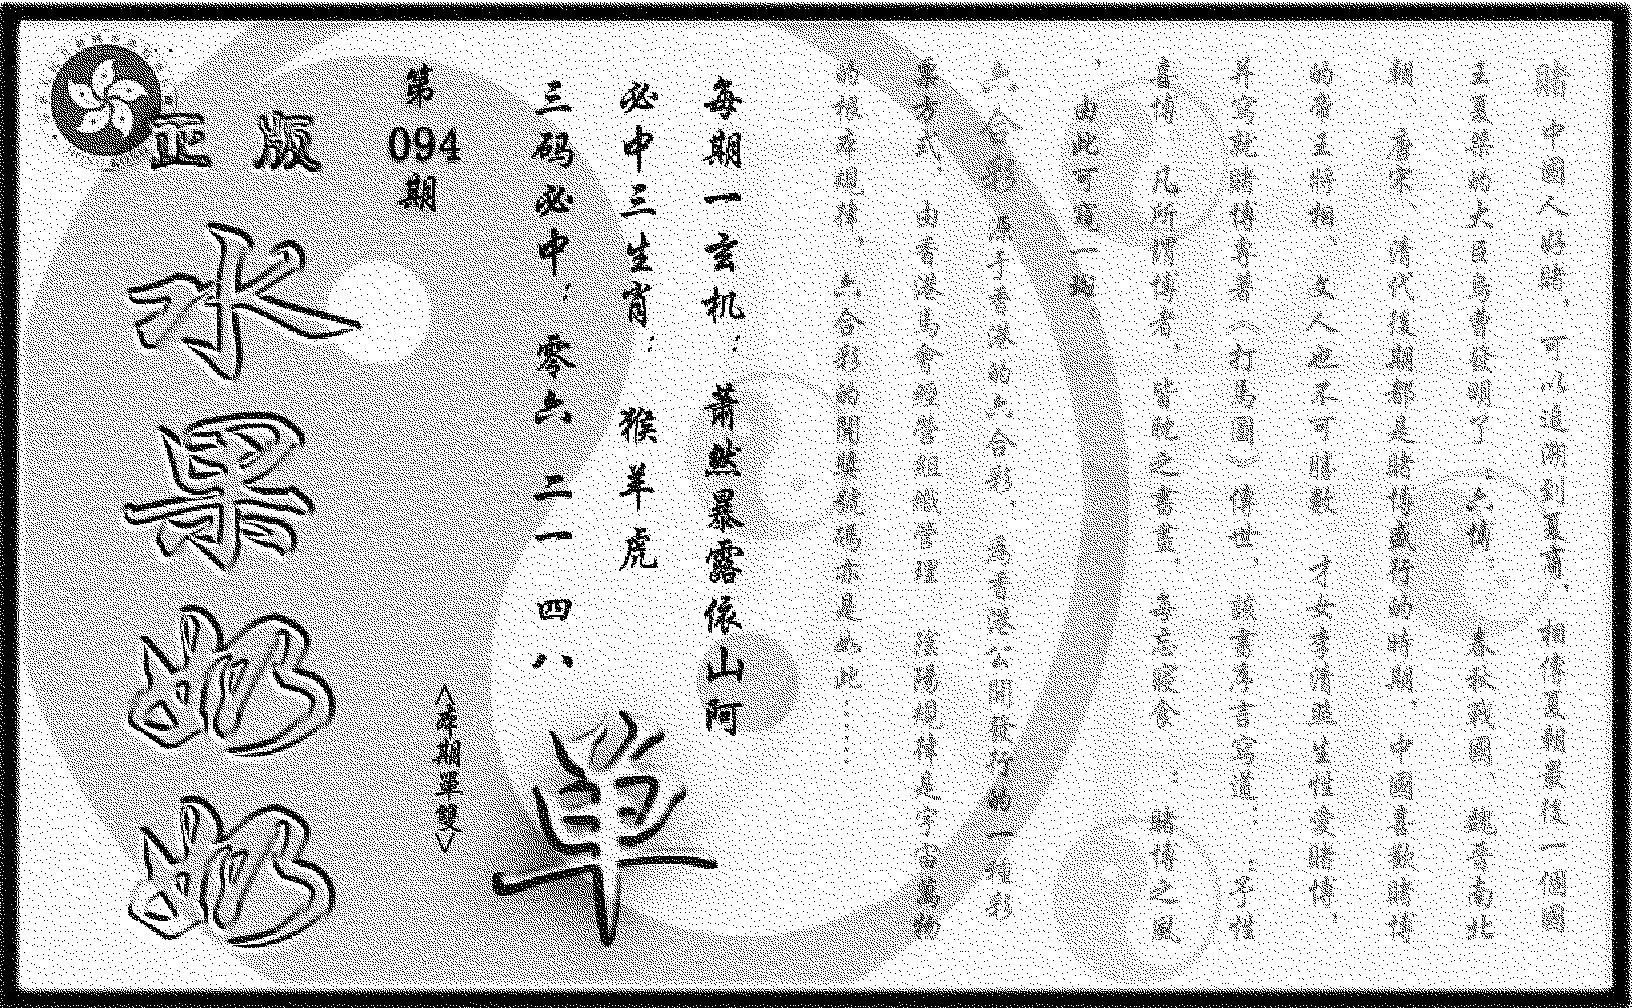 賭,中國人好賭,可以追溯到夏商,相傳夏朝最後一個國
王夏桀的大臣烏曹發明了“六博”。春秋戰國、魏晉南北
朝、唐宋、清代後期都是賭博盛行的時期,中國喜歡賭博
的帝王將相、文人也不可勝數,才女李清照生性愛賭博,
并寫就賭博專著《打馬圖》傳世,該書序言寫道:“予性
喜博,凡所謂博者,皆耽之書畫,每忘寢食”;賭博之風
、由此可窺一斑
六合彩,源于香港的六合彩,為香港公開發行的一種彩
票方式,由香港馬會經營組織管理,陰陽規律是宇宙萬物
的根本規律,六合彩的開獎號碼亦是如此……
每期一玄机: 萧然暴露依山阿
必中三生肖: 猴羊虎
三码必中: 零六 二一 四八
单
<本期單雙>
第094期
正版
水果奶奶